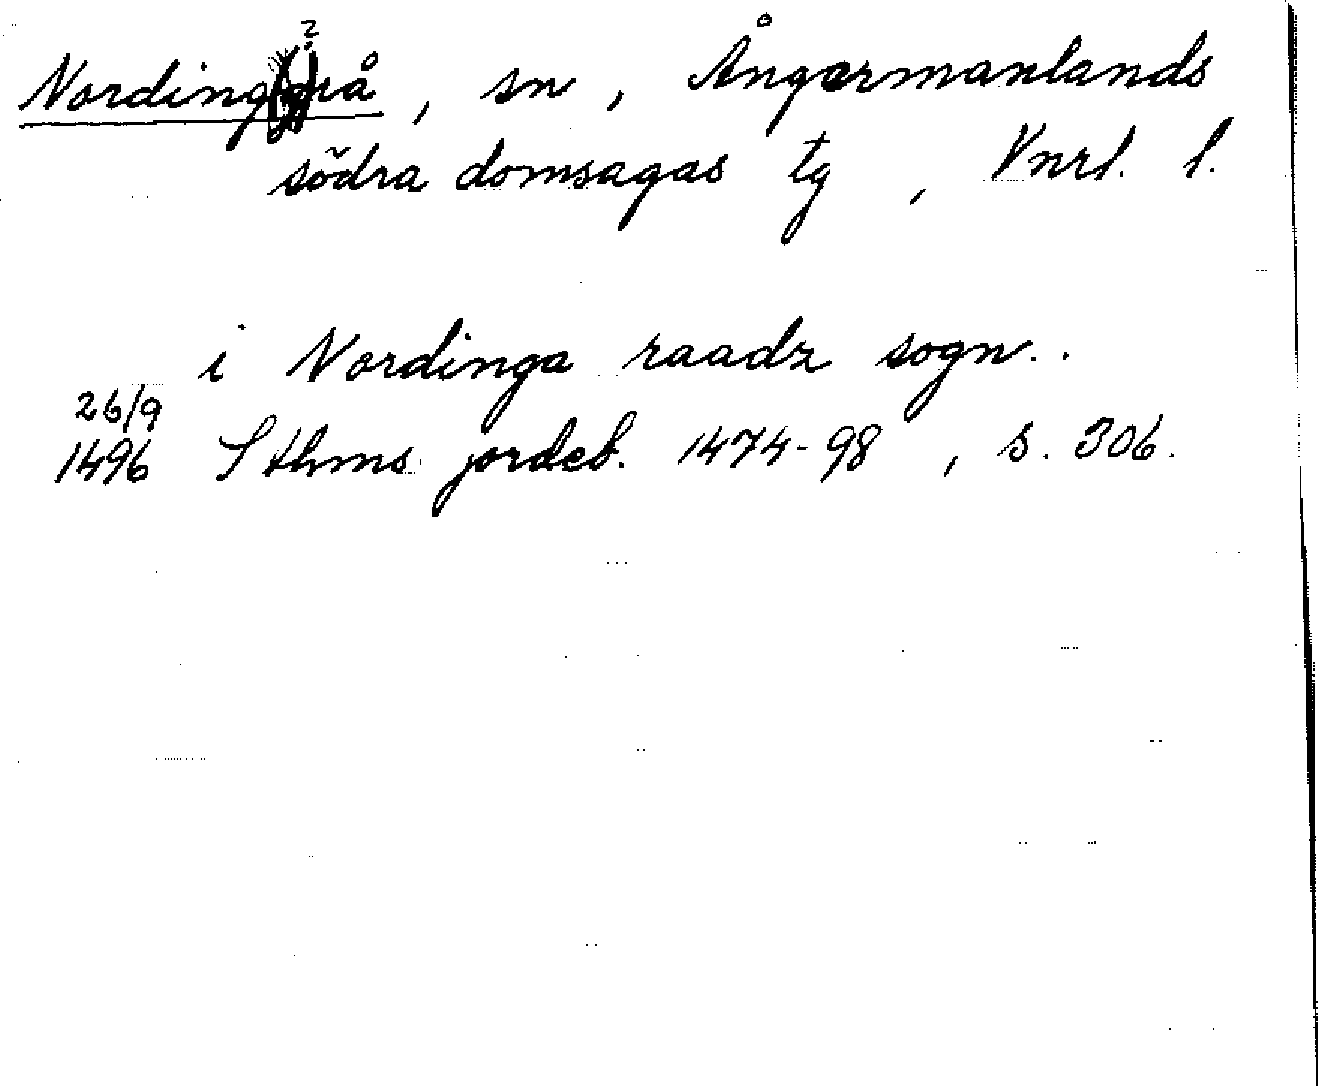 Nording(g)rå, sn, Ångermanlands
södra domsagas tg, Vnrl. l.
i Nordinga raadz sogn..
26/9
1496 Sthms jordeb. 1474-98, s. 306.